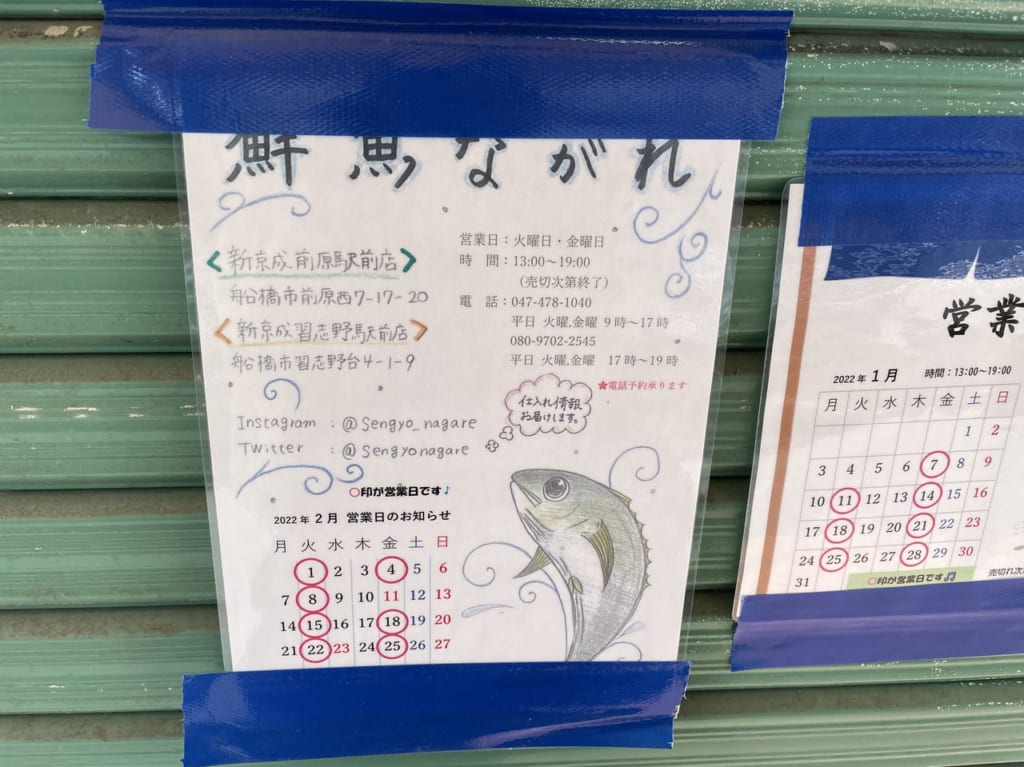 鮮魚ながれ
<新京成前原駅前店>
船橋市前原西7-17-20
<新京成習志野駅前店>
船橋市習志野台4-1-9
営業日：火曜日・金曜日
時　間：13:00～19:00
（売切次第終了）
電　話：047-478-1040
平日 火曜,金曜 9時～17時
080-9702-2545
平日 火曜,金曜 17時～19時
*電話予約承ります
仕入れ情報
お届けします。
Instagram : @sengyo_nagare
Twitter : @sengyonagare
○印が営業日です♪
2022年2月 営業日のお知らせ
月 火 水 木 金 土 日
1 2 3 4 5 6
7 8 9 10 11 12 13
14 15 16 17 18 19 20
21 22 23 24 25 26 27
営業
2022年 1月 時間：13:00～19:00
月 火 水 木 金 土 日
1 2
3 4 5 6 7 8 9
10 11 12 13 14 15 16
17 18 19 20 21 22 23
24 25 26 27 28 29 30
31
○印が営業日です♫
売切れ次